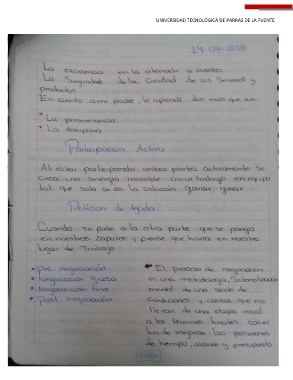 UNIVERSIDAD TECNOLÓGICA DE PARRAS DE LA FUENTE
19-09-2018
La excelencia en la atención a clientes.
La Seguridad de la Calidad de sus Servicios y
productos
En cuanto a mi parte, le aprendí dos más que son:
* La perseverancia
* La disciplina
Participación Activa
Al estar participando ambas partes activamente se
crea una sinergia increíble como trabajo en equipo
tal que solo se da la solución ganar-ganar
Petición de Ayuda
Cuando se pide a la otra parte que se ponga
en nuestros zapatos y piense que haría en nuestro
lugar de Trabajo
* Pre-negociación
* Negociación gruesa
* Negociación fina
* Post negociación
El proceso de negociación
es una metodología,
mental de una serie de
condiciones y causas que no
llevan de una etapa inicial
a los terminos finales con el
fin de mejorar las
de tiempo, alcance y presupuesto